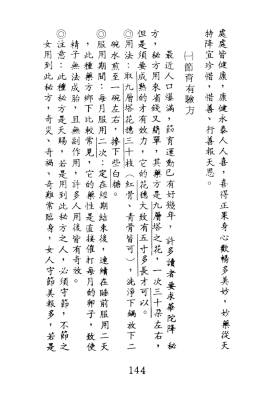 處處皆健康，康健永泰人人喜，喜得正果身心歡暢多美妙，妙藥從天
特降宜珍惜，惜善、行善報天恩。
㈠節育有驗方
最近人口爆滿，節育運動已有好幾年，許多讀者要求華陀降秘
方，秘方用來省錢又簡單，其藥方是九層塔之花，一次三十朵左右，
但是須要成熟的才有效力，它的花穗大致有五寸多長才可以。
◎用法：取九層塔花穗三十枝（紅骨、青骨皆可），洗淨下鍋放下二
碗水煎至一碗左右，摻下些白糖。
◎服用期間：每月服用二次：定在經期結束後，連續在睡前服用二天
，此種藥方鄉下比較常見，它的藥性是直接催打每月的卵子，致使
精子無法成胎，且無副作用，許多人用後皆有奇效。
◎注意：此種秘方是天賜，若是用到此秘方之人，必須守節，不節之
女用到此秘方，奇災、奇禍、奇難常臨身，女人守節美報多，若是
144